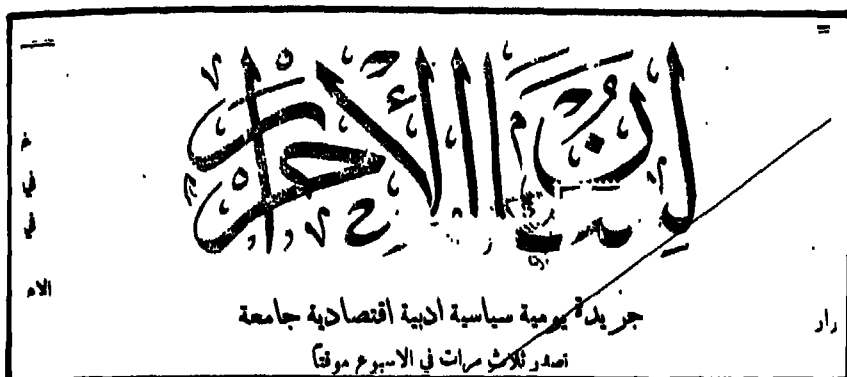 لِسَانُ الأحرار
في
في
الام
رار
جريدة يومية سياسية ادبية اقتصادية جامعة
تصدر ثلاث مرات في الاسبوع موقتاً